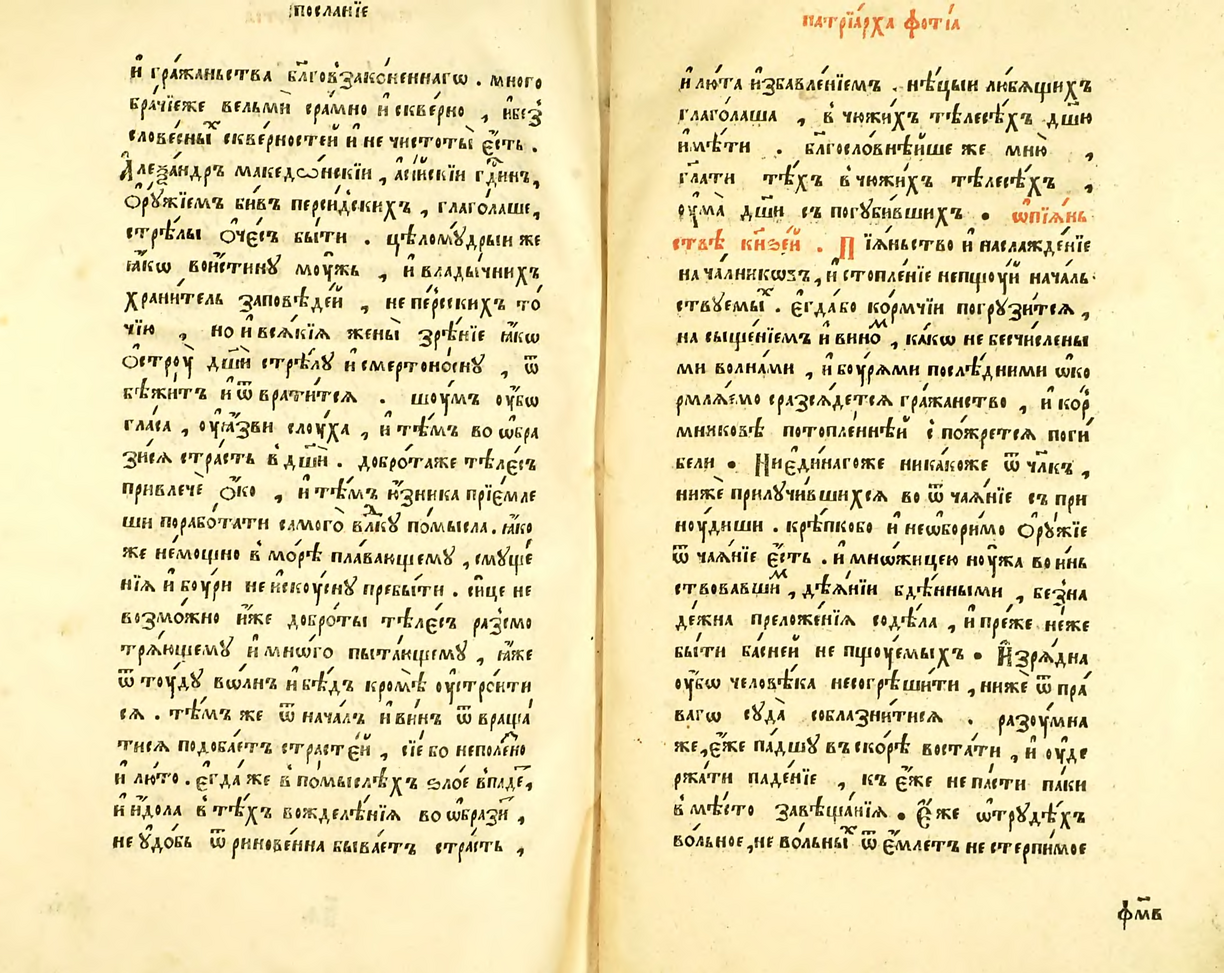 посланїе
и҆ гра́жаньства бл҃гоѡ҆зако́неннагѡ . много
бра́чїеже вельмѝ сра́мно и҆ скве́рно , и҆без̾
слове́сныхъ скве́рностей и҆ не чистоты̀ є҆́сть .
А҆леѯа́ндръ македѡ́нскїи , а҆сі́искїи гд҃и́нъ ,
о҆рꙋ́жїемъ бивъ перси́дскихъ , глаго́лаше ,
стрѣ́лы о҆че́съ бы́ти . цѣломꙋ́дрыи же
ꙗ҆́кѡ вои́стинꙋ моу́жь , и҆ влады́чнихъ
храни́тель за́повѣдей , не пе́рсскихъ то́
чїю , но и҆ всѧ́кїѧ жены̀ зрѣ́нїе ꙗ҆́кѡ
о҆строу̀ дш҃ѝ стрѣ́лꙋ и҆ смертоно́снꙋ , ѿ
бѣжи́тъ и҆ ѿ врати́тсѧ . шоу́мъ оу҆́бѡ
гла́са , оу҆ꙗ҆́зви слоу́ха , и҆ тѣ́мъ во ѡ҆бра
зи́сѧ стра́сть в̾ дш҃ѝ . добро́таже тѣле́съ
привлечѐ о҆́ко , и҆ тѣ́мъ ю҆́зника прїе́мле
ши порабо́тати самого̀ влⷣкꙋ по́мысла . ꙗ҆́ко
же не́мощно в̾ мо́рѣ пла́вающемꙋ , смꙋще́
нїѧ и҆ боу́ри не и҆скоу́снꙋ пребы́ти . си́це не
возмо́жно и҆́же добро́ты тѣле́съ разсмо
трѧ́ющемꙋ и҆ мно́го пыта́ющемꙋ , ꙗ҆́же
ѿ тоу́дꙋ во́лнъ и҆ бѣ́дъ кромѣ̀ оу҆стро́ити
сѧ . тѣ́мъ же ѿ нача́лъ и҆ ви́нъ ѿ враща́
тисѧ подоба́етъ страсте́й , сїе́ бо неполе́зно
и҆ лю́то . є҆гда́ же в̾ по́мыслѣхъ ѕло́е впаде́ ,
и҆ и҆́дола в̾ тѣ́хъ вожделѣ́нїѧ во ѡ҆брази́ ,
не ᲂу҆до́бь ѿ риновенна быва́етъ стра́сть ,
патрїа́рха фо́тїа
и҆ лю́та и҆збавле́нїемъ . нѣ́цыи лю́бѧщихъ
глаго́лаша , в̾ чю́жихъ тѣлесѣ́хъ дш҃ю
и҆мѣ́ти . бл҃гослове́йше же мню̀ ,
гл҃ати тѣ́хъ в̾ чю́жихъ тѣлесѣ́хъ ,
оу҆ма̀ дш҃и съ погꙋби́вшихъ . ѡ҆пїѧ́нь
ствѣ кнѧзе́й . Пїѧ́ньство и҆ наслажде́нїе
нача́лникѡвъ , и҆ стопле́нїе непщоу́й нача́ль
ствꙋемыхъ . є҆гда́бо ко́рмчїи погрꙋзи́тсѧ ,
на сыще́нїемъ и҆ вино́мъ , ка́кѡ не бесчи́слены
ми волна́ми , и҆ боу́рѧми послѣ́дними ѡ҆ко
рмлѧ́емо сразсѧ́детсѧ гражанство , и҆ кор
мникѡвѣ потопле́ннѣй с̾ пожре́тсѧ поги́
бели . Ни є҆ди́нагоже ника́коже ѿ чл҃къ ,
нижѐ прилꙋчи́вшихсѧ во ѿ ча́ѧнїе съ при
ноу́диши . крѣ́пкобо и҆ неѡ҆бори́мо о҆рꙋ́жїе
ѿ ча́ѧнїе є҆́сть . и҆ мно́жицею ноу́жа во и́нь
ствовавшимъ , дѣ́ѧнїи бдѣ́нными , безна
де́жна преложе́нїѧ содѣ́ла , и҆ пре́же не́же
бы́ти ба́сней не пщоу́емыхъ . И҆зрѧ́дна
оу҆́бѡ человѣ́ка несогрѣши́ти , нижѐ ѿ пра́
вагѡ сꙋда̀ соблазни́тисѧ . разоу́мна
же , є҆́же па́дшꙋ въско́рѣ воста́ти , и҆ оу҆де
ржа́ти паде́нїе , къ є҆́же не па́сти па́ки
в̾ мѣ́сто завѣща́нїѧ . Е҆́же ѡ҆трꙋдѣ́хъ
во́льное , не во́льныхъ ѿ є҆́млетъ не стерпи́мое
фм҃в